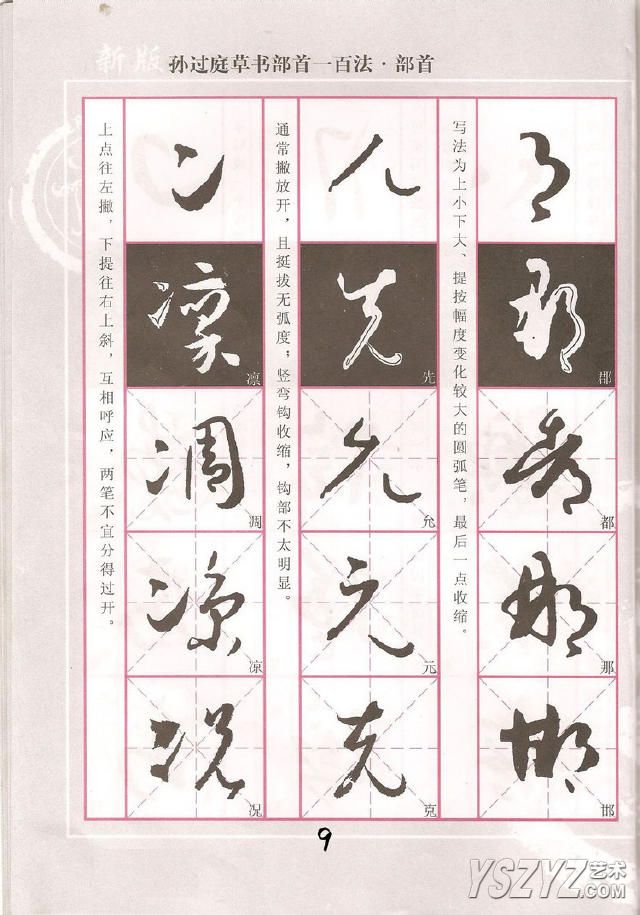 新版 孙过庭草书部首一百法·部首
写法为上小下大、提按幅度变化较大的圆弧笔，最后一点收缩。
郡
都
那
邯
通常撇放开，且挺拔无弧度；竖弯钩收缩，钩部不太明显。
先
允
元
克
上点往左撇，下提往右上斜，互相呼应，两笔不宜分得过开。
凛
凋
凉
况
9
YSZYZ艺术
.com